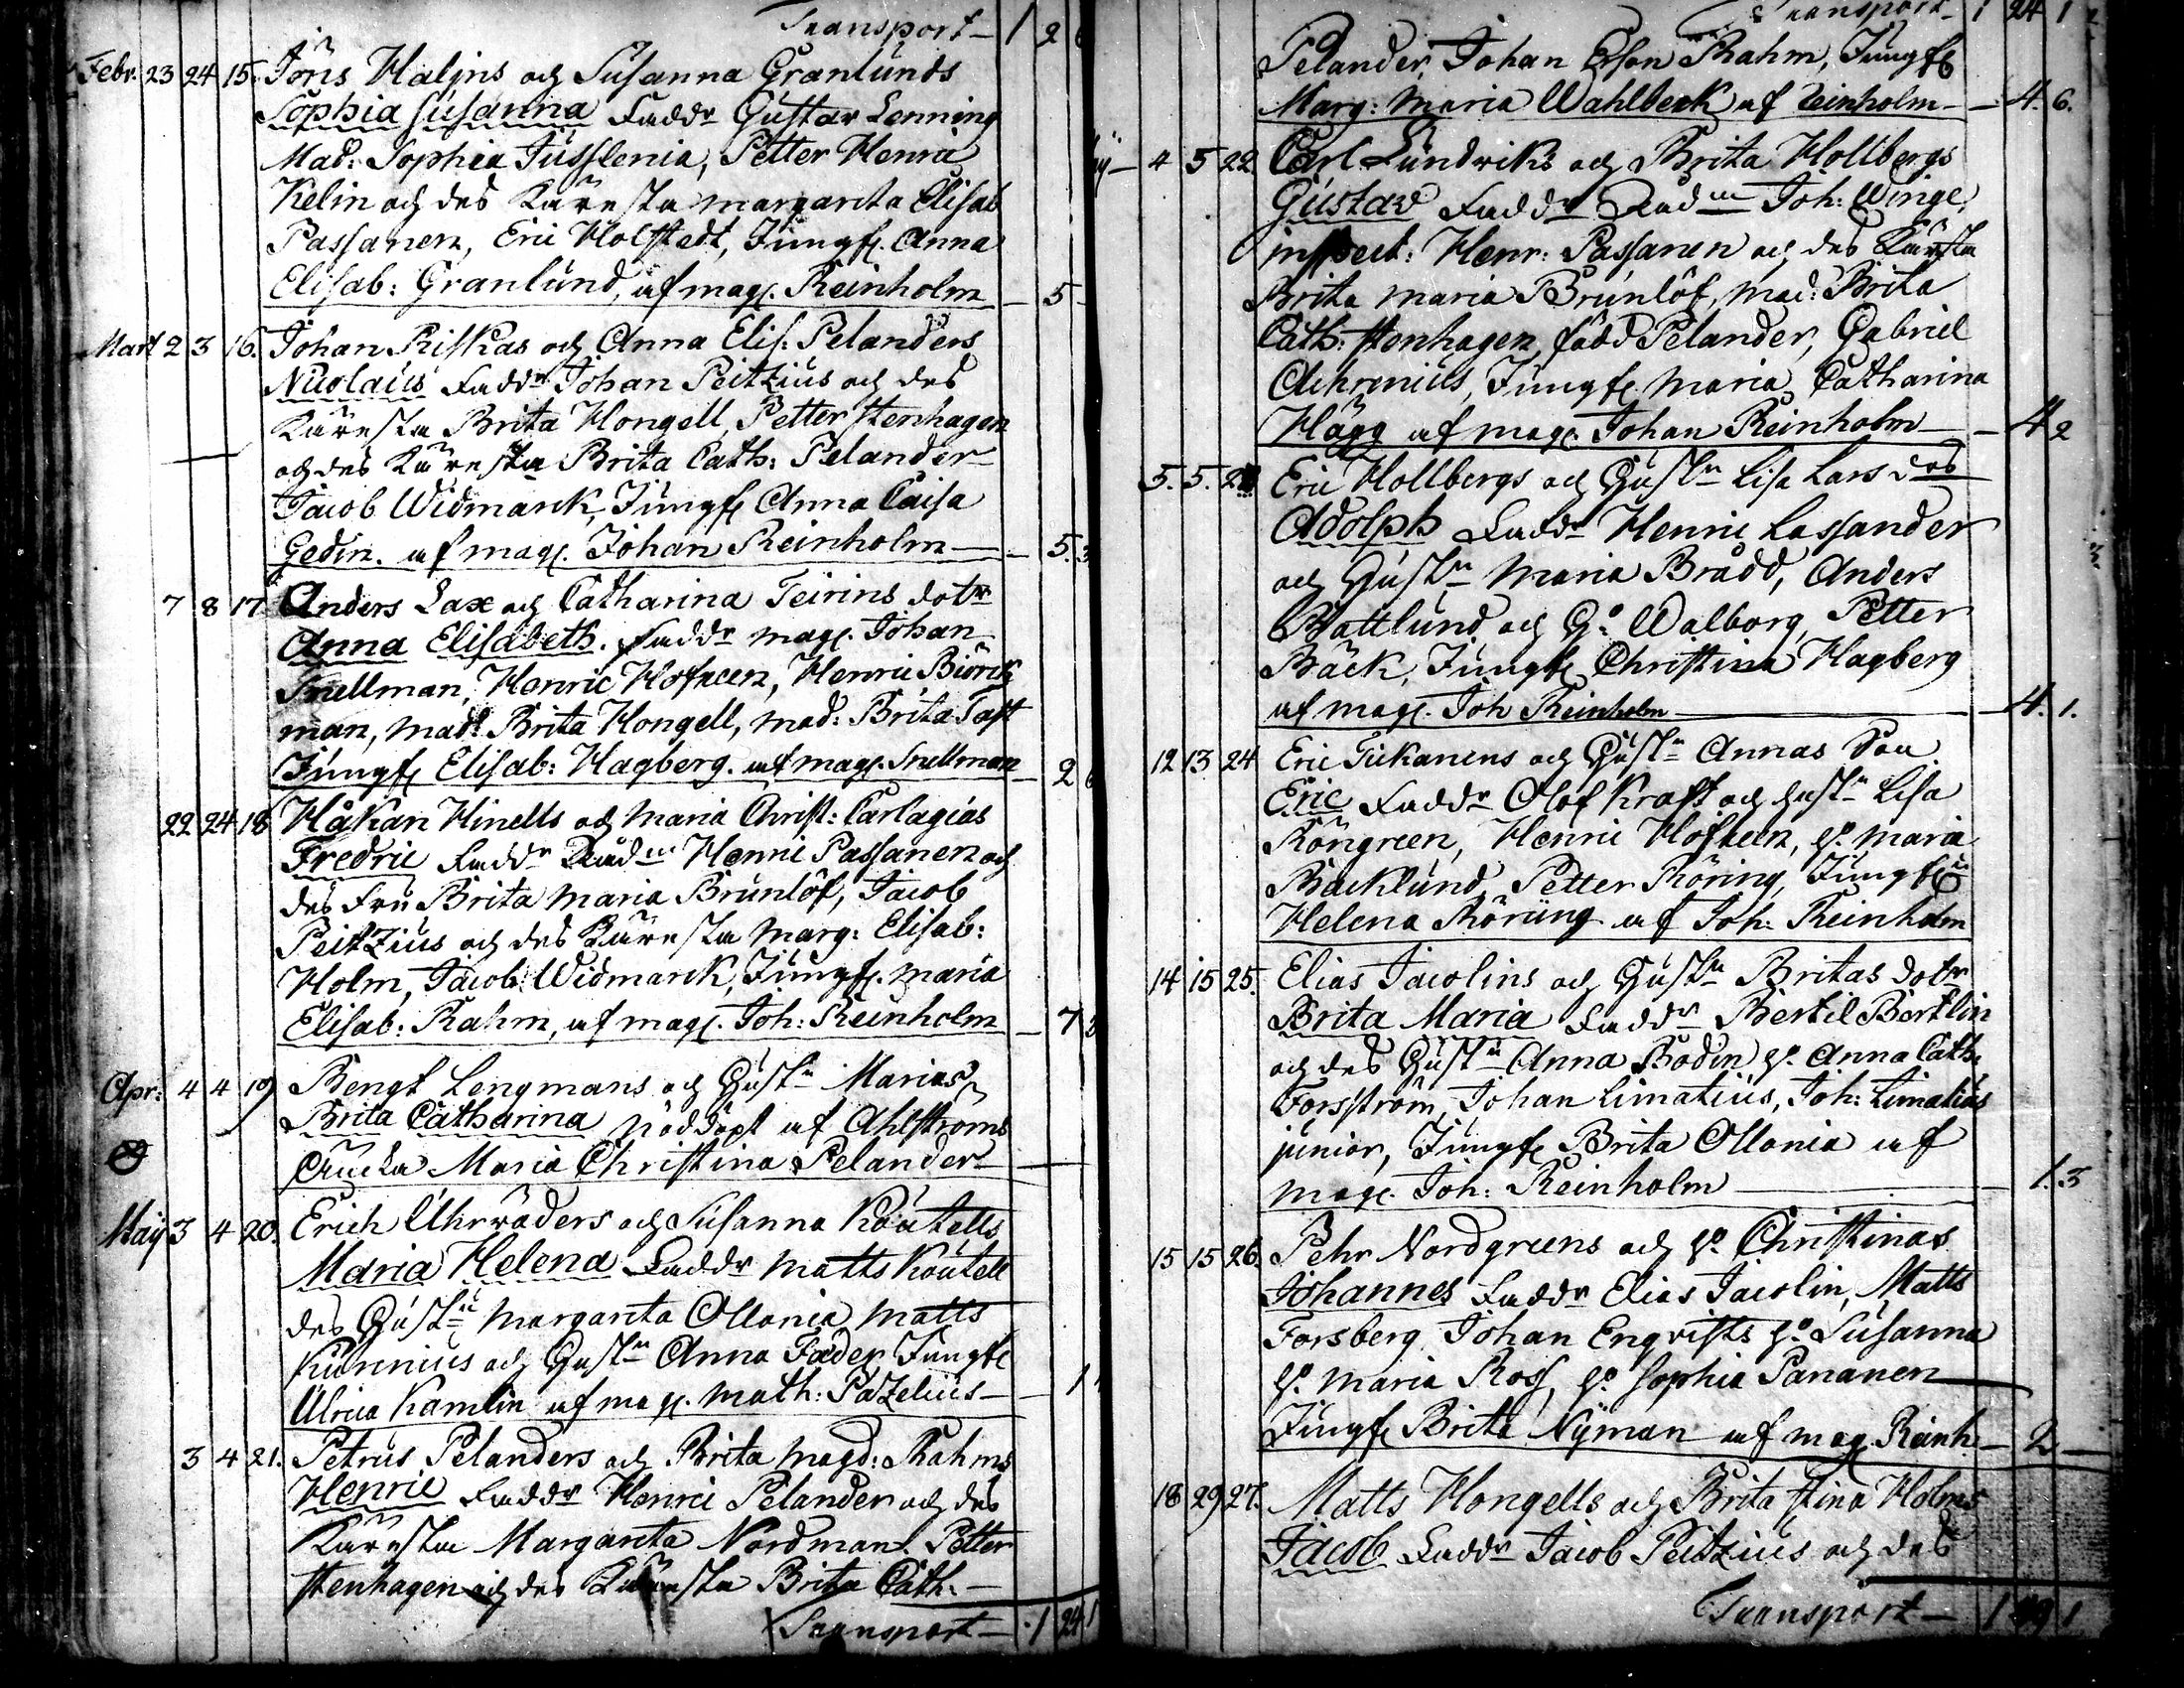 Transport — 1 2
Febr. 23 24 15. Jöns Haljns och Susanna Granlunds
Sophia Susanna Faddr Gustav Lenning
Mad: Sophia Jusslenia, Petter Henric
Kelin och des Käresta Margareta Elisab
Passanen, Eric Holstedt, Jungf. Anna
Elisab: Granlund, af mag. Reinholm — 5 —
Mart 2 3 16. Johan Riskas och Anna Elis. Pelanders
Nicolaus Faddr Johan Peitzius och des
Käresta Brita Hongell, Petter Stenhagen
och des Käresta Brita Cath: Pelander
Jacob Widmarck, Jungf. Anna Caisa
Gedin. af mag. Johan Reinholm — 5. 3
7 8 17 Anders Lax och Catharina Teirins dotr
Anna Elisabeth. Faddr mag. Johan
Snellman, Henric Hofreen, Henric Biörck
man, mad: Brita Hongell, mad: Brita Tast
Jungf. Elisab: Hagberg. af mag. Snellman — 2 6
22 24 18 Håkan Hinells och Maria Christ: Carlagias
Fredric Faddr Rådm Henric Passanen och
des Fru Brita Maria Brunlöf, Jacob
Peitzius och des Käresta Marg: Elisab:
Holm, Jacob Widmarck, Jungf. Maria
Elisab: Rahm, af mag. Joh: Reinholm — 7 3
Apr: 4 4 19 Bengt Lengmans och Hustn Marias
Brita Catharina nöddöpt af Ahlströms
Encka Maria Christina Pelander —
Maÿ 3 4 20. Erich Uhrväders och Susanna Koutells
Maria Helena Faddr Matts Koutell
des Hustn Margareta Ollonia Matts
Kunnius och Hustn Anna Fader, Jungf.
Ulrica Kamlin af mag. Math: Pazelius — 1
3 4 21. Petrus Pelanders och Brita Magd: Rahms
Henric Faddr Henric Pelander och des
Käresta Margareta Nordman, Petter
Stenhagen och des Käresta Brita Cath. —
Transport — 1 24 1
Transport — 1 24 1
Pelander, Johan Erson Rahm, Jungf.
Marg: Maria Wahlbeck af Reinholm — 4. 6.
4 5 22. Carl Lundvik's och Brita Hollbergs
Gustav Faddr Rådm Joh: Winge,
inspect: Henr: Passanen och des Käresta
Brita Maria Brunlöf, Mad: Brita
Cath: Stenhagen född Pelander, Gabriel
Aehrenius, Jungf. Maria Catharina
Hägg af mag. Johan Reinholm — 4 2
5. 5. 23 Eric Hollbergs och Hustn Lisa Lars des
Adolph Faddr Henric Lassander
och Hustn Maria Brådd, Anders
Battlund och H:o Walborg, Petter
Bäck, Jungf. Christina Hagberg
af mag. Joh Reinholm — 4. 1.
12 13 24 Eric Tickanens och Hustn Annas Son
Eric Faddr Olof Kraft och Hustn Lisa
Röngreen, Henric Hofreen, H:o Maria
Backlund, Petter Röring, Jungf.
Helena Röring af Joh: Reinholm
14 15 25. Elias Jacolins och Hustn Britas dotr
Brita Maria Faddr Bertil Bertlin
och des Hustn Anna Bodin, H:o Anna Cath:
Forsström, Johan Limatius, Joh: Limatius
junior, Jungf. Brita Ollonia af
mag. Joh: Reinholm — 1. 3
15 15 26 Pehr Nordgreens och H:o Christinas
Johannes Faddr Elias Jacolin, Matts
Forsberg, Johan Engvists H:o Susanna
H:o Maria Ross, H:o Sophia Pananen
Jungf. Brita Nÿman af mag Reinh. — 2 —
18 29 27. Matts Hongells och Brita Stina Holms
Jacob Faddr Jacob Peitzius och des
Transport — 1 49 1